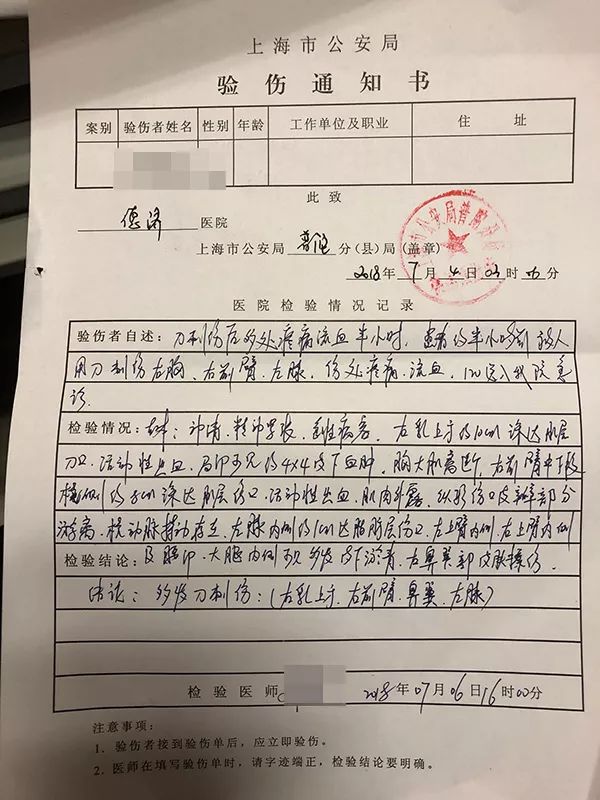 上海市公安局
验伤通知书
案别 验伤者姓名 性别 年龄 工作单位及职业 住 址
此致
德济 医院
上海市公安局 普陀 分(县)局(盖章)
2018年7月4日03时 分
医院检验情况记录
验伤者自述：刀刺伤后多处疼痛流血半小时，患者约半小时前被人
用刀刺伤左胸、右前臂、左膝，伤处疼痛、流血，120送入我院急
诊。
检验情况： 神清，精神 左乳上方约10cm深达肌层
刀口，活动性出血，局部可见约4×4皮下血肿，胸大肌离断，右前臂中下段
约8cm深达肌层伤口，活动性出血，肌肉外露，纵形伤口皮瓣部分
游离，桡动脉搏动存在，左膝内侧约1cm达脂肪层伤口，左上臂内侧、右上臂内侧
检验结论：及腰部、大腿内侧可见多发皮下淤青，右鼻翼部皮肤擦伤。
结论：多发刀刺伤：(左乳上方、右前臂、鼻翼、左膝)
检验医师 2018年07月06日16时00分
注意事项：
1．验伤者接到验伤单后，应立即验伤。
2．医师在填写验伤单时，请字迹端正，检验结论要明确。